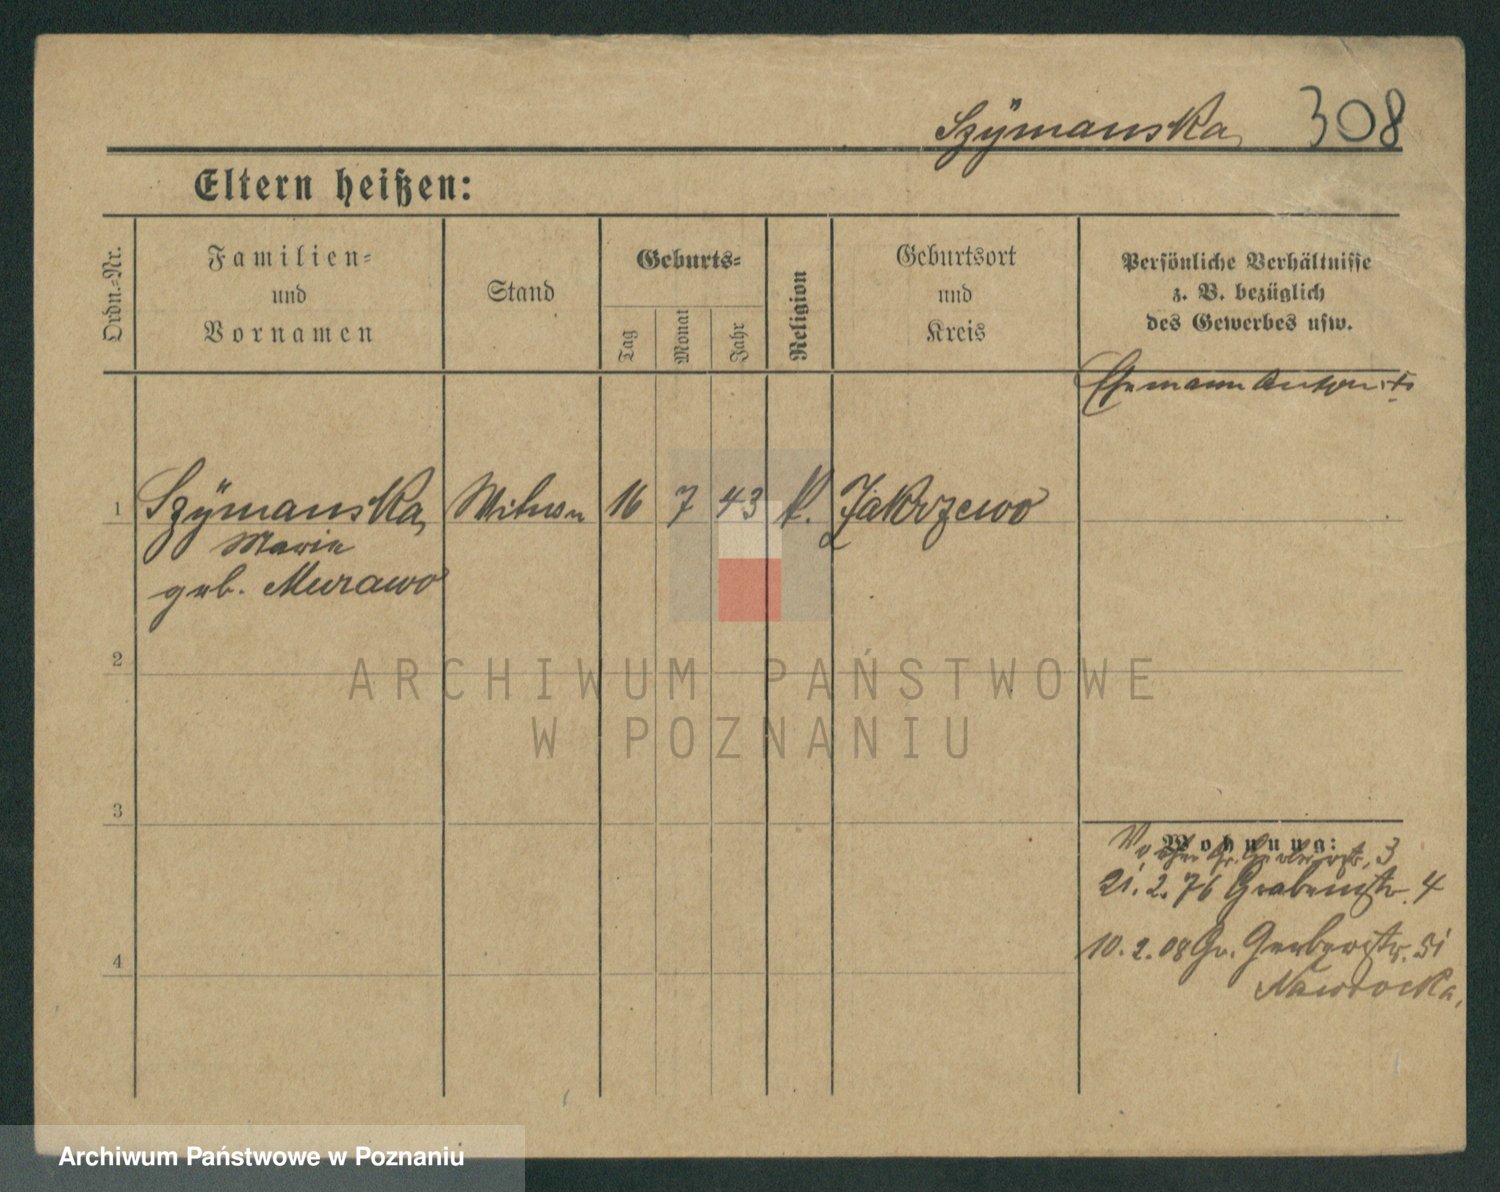 Szÿmanska 308
Eltern heißen:
Ordn.-Nr.
Familien-
und
Vornamen
Stand
Geburts-
Tag
Monat
Jahr
Religion
Geburtsort
und
Kreis
Persönliche Verhältnisse
z. B. bezüglich
des Gewerbes usw.
Ehemann Anton
1 Szÿmanska Witwe 16 7 43 k. Zakrzewo
Marie
geb. Murawo
2
3
4
Wohnung:
3
21. 2. 76 Grabenstr. 4
10. 2. 08 Gr. Gerberstr. 51
Nawrocka
ARCHIWUM PAŃSTWOWE
W POZNANIU
Archiwum Państwowe w Poznaniu